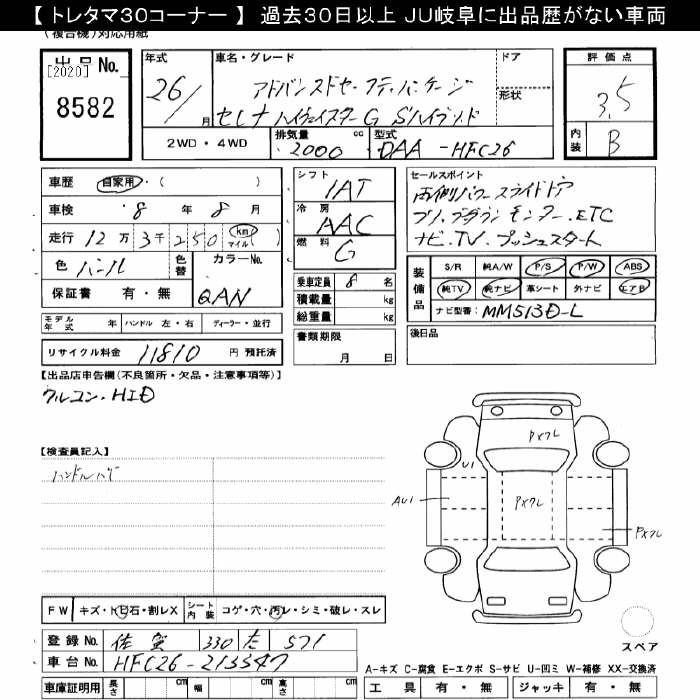 【 トレタマ30コーナー 】 過去30日以上 JU岐阜に出品歴がない車両
(複合機)対応用紙
出品 No.
[2020]
8582
年式 26/ 月
車名・グレード
アドバンスドセーフティパッケージ
セレナ ハイウェイスターG Sハイブリッド
ドア
形状
評価点 3.5
内装 B
2WD・4WD
排気量 2000 cc
型式 DAA-HFC26
車歴 自家用・( )
車検 8 年 8 月
走行 12万 3千 250 km マイル ( )
色 パール
色替
カラーNo. QAN
保証書 有・無
モデル年式 年
ハンドル 左・右
ディーラー・並行
リサイクル料金 11810 円 預託済
シフト IAT
冷房 AAC
燃料 G
乗車定員 8 名
積載量 kg
総重量 kg
書類期限
月 日
セールスポイント
両側パワースライドドア
フリップダウンモニター.ETC
ナビ.TV.プッシュスタート
装備品
S/R 純A/W P/S P/W ABS
純TV 純ナビ 革シート 外ナビ エアB
ナビ型番: MM513D-L
後日品
【出品店申告欄(不良箇所・欠品・注意事項等)】
クルコン・HID
【検査員記入】
ハンドルハゲ
PXフレ
U1
AU1
PXフレ
PXフレ
スペア
FW キズ・トビ石・割レX
シート内装 コゲ・穴・汚レ・シミ・破レ・スレ
登録 No. 佐賀 330 た 571
車台 No. HFC26-213347
車庫証明用 長さ cm 幅 cm 高さ cm
A-キズ C-腐食 E-エクボ S-サビ U-凹ミ W-補修 XX-交換済
工具 有・無 ジャッキ 有・無